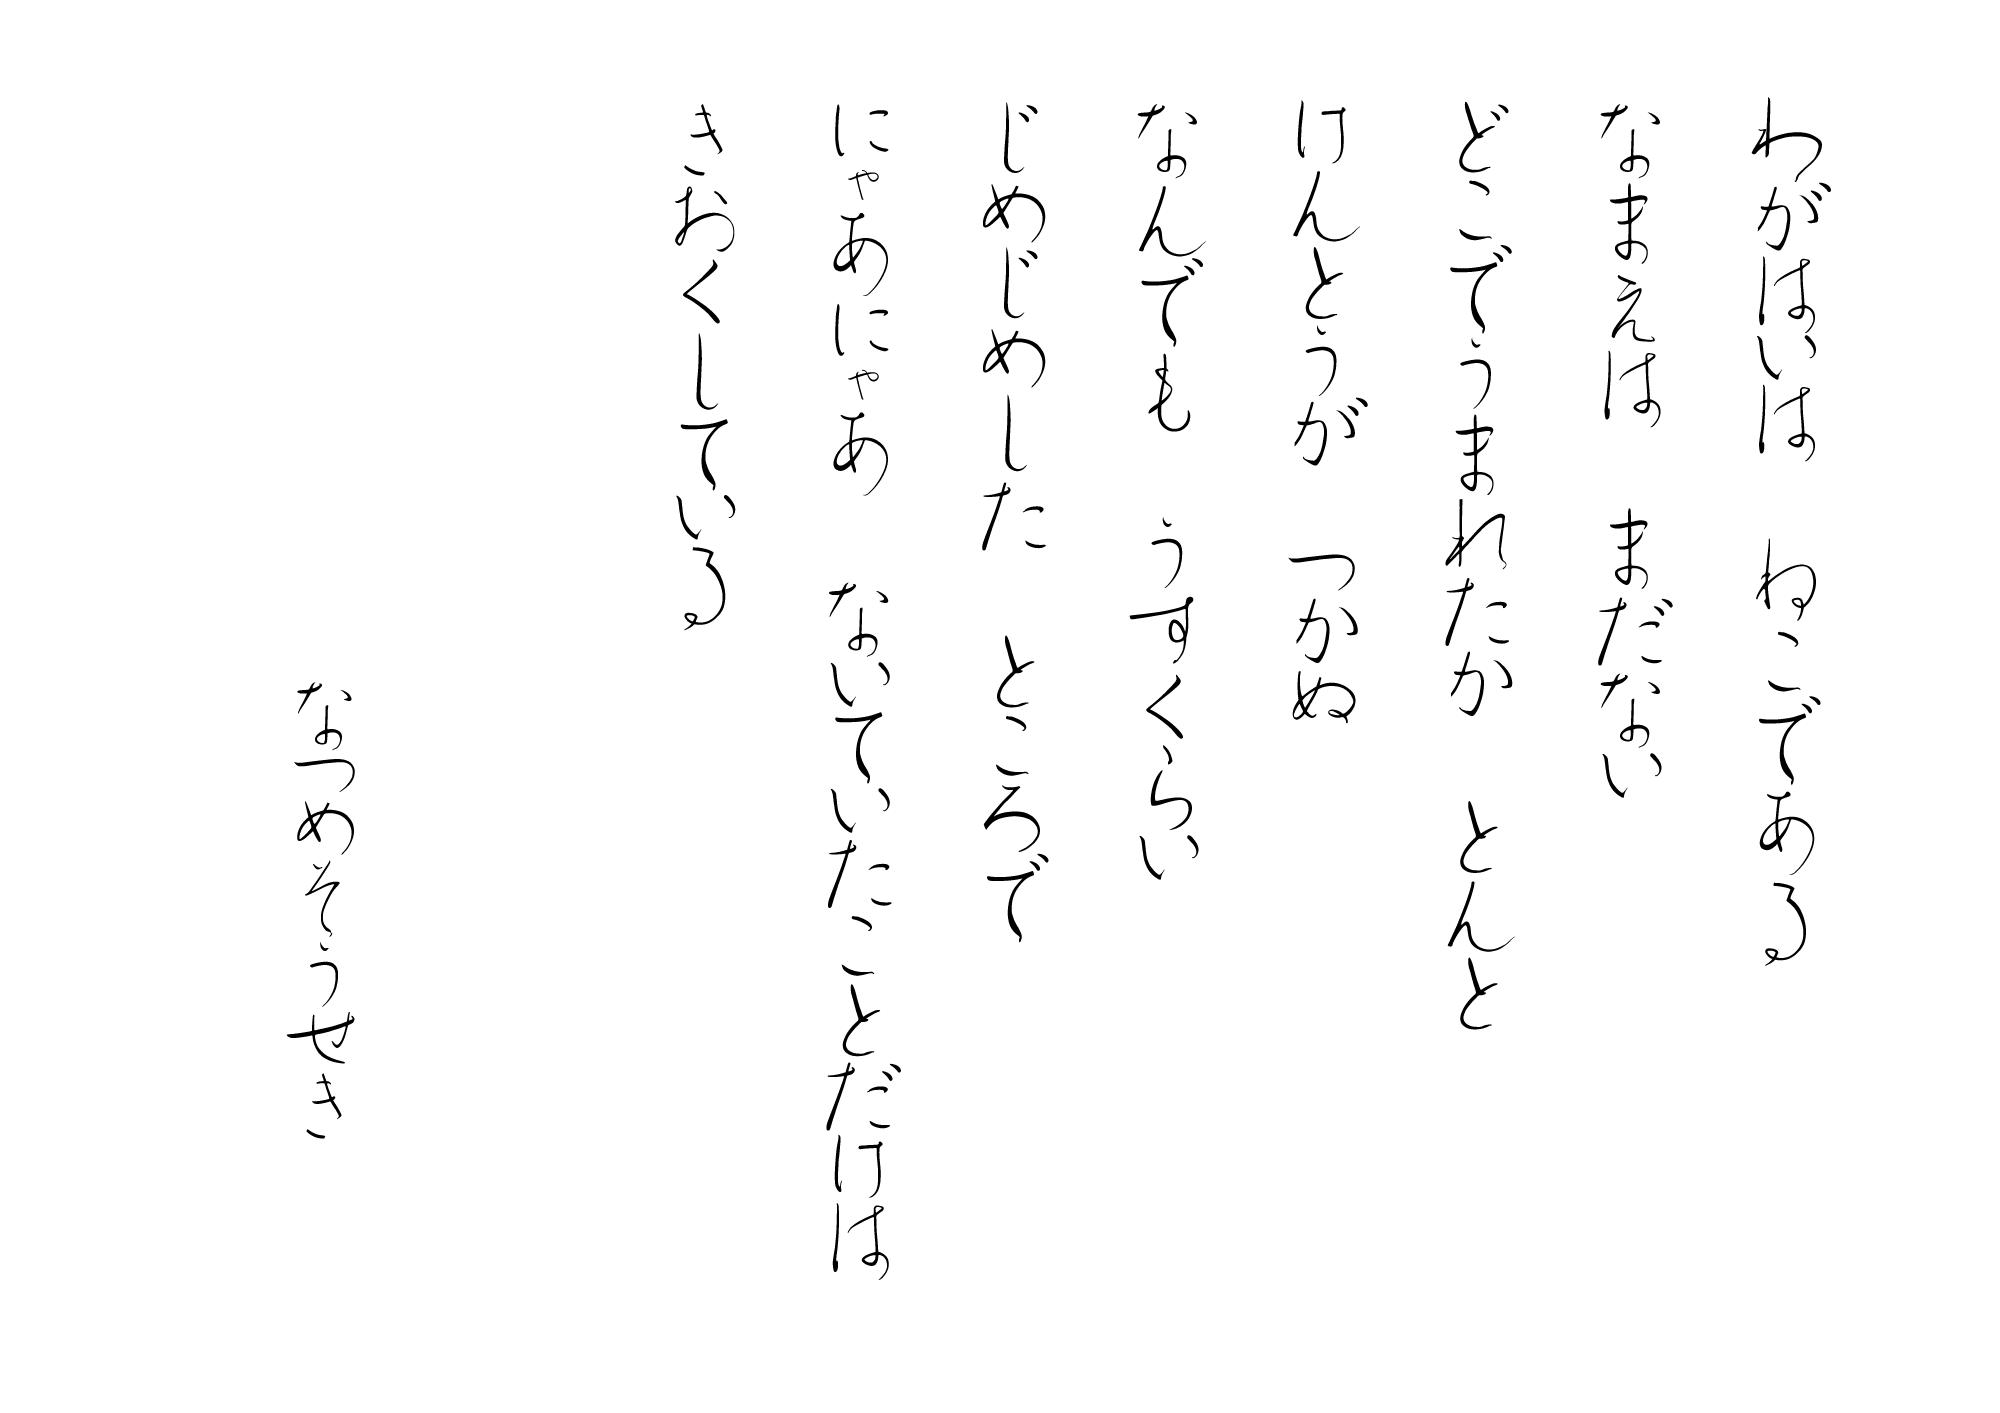 わがはいは　ねこである
なまえは　まだない
どこでうまれたか　とんと
けんとうが　つかぬ
なんでも　うすくらい
じめじめした　ところで
にゃあにゃあ　ないていたことだけは
きおくしている
なつめそうせき